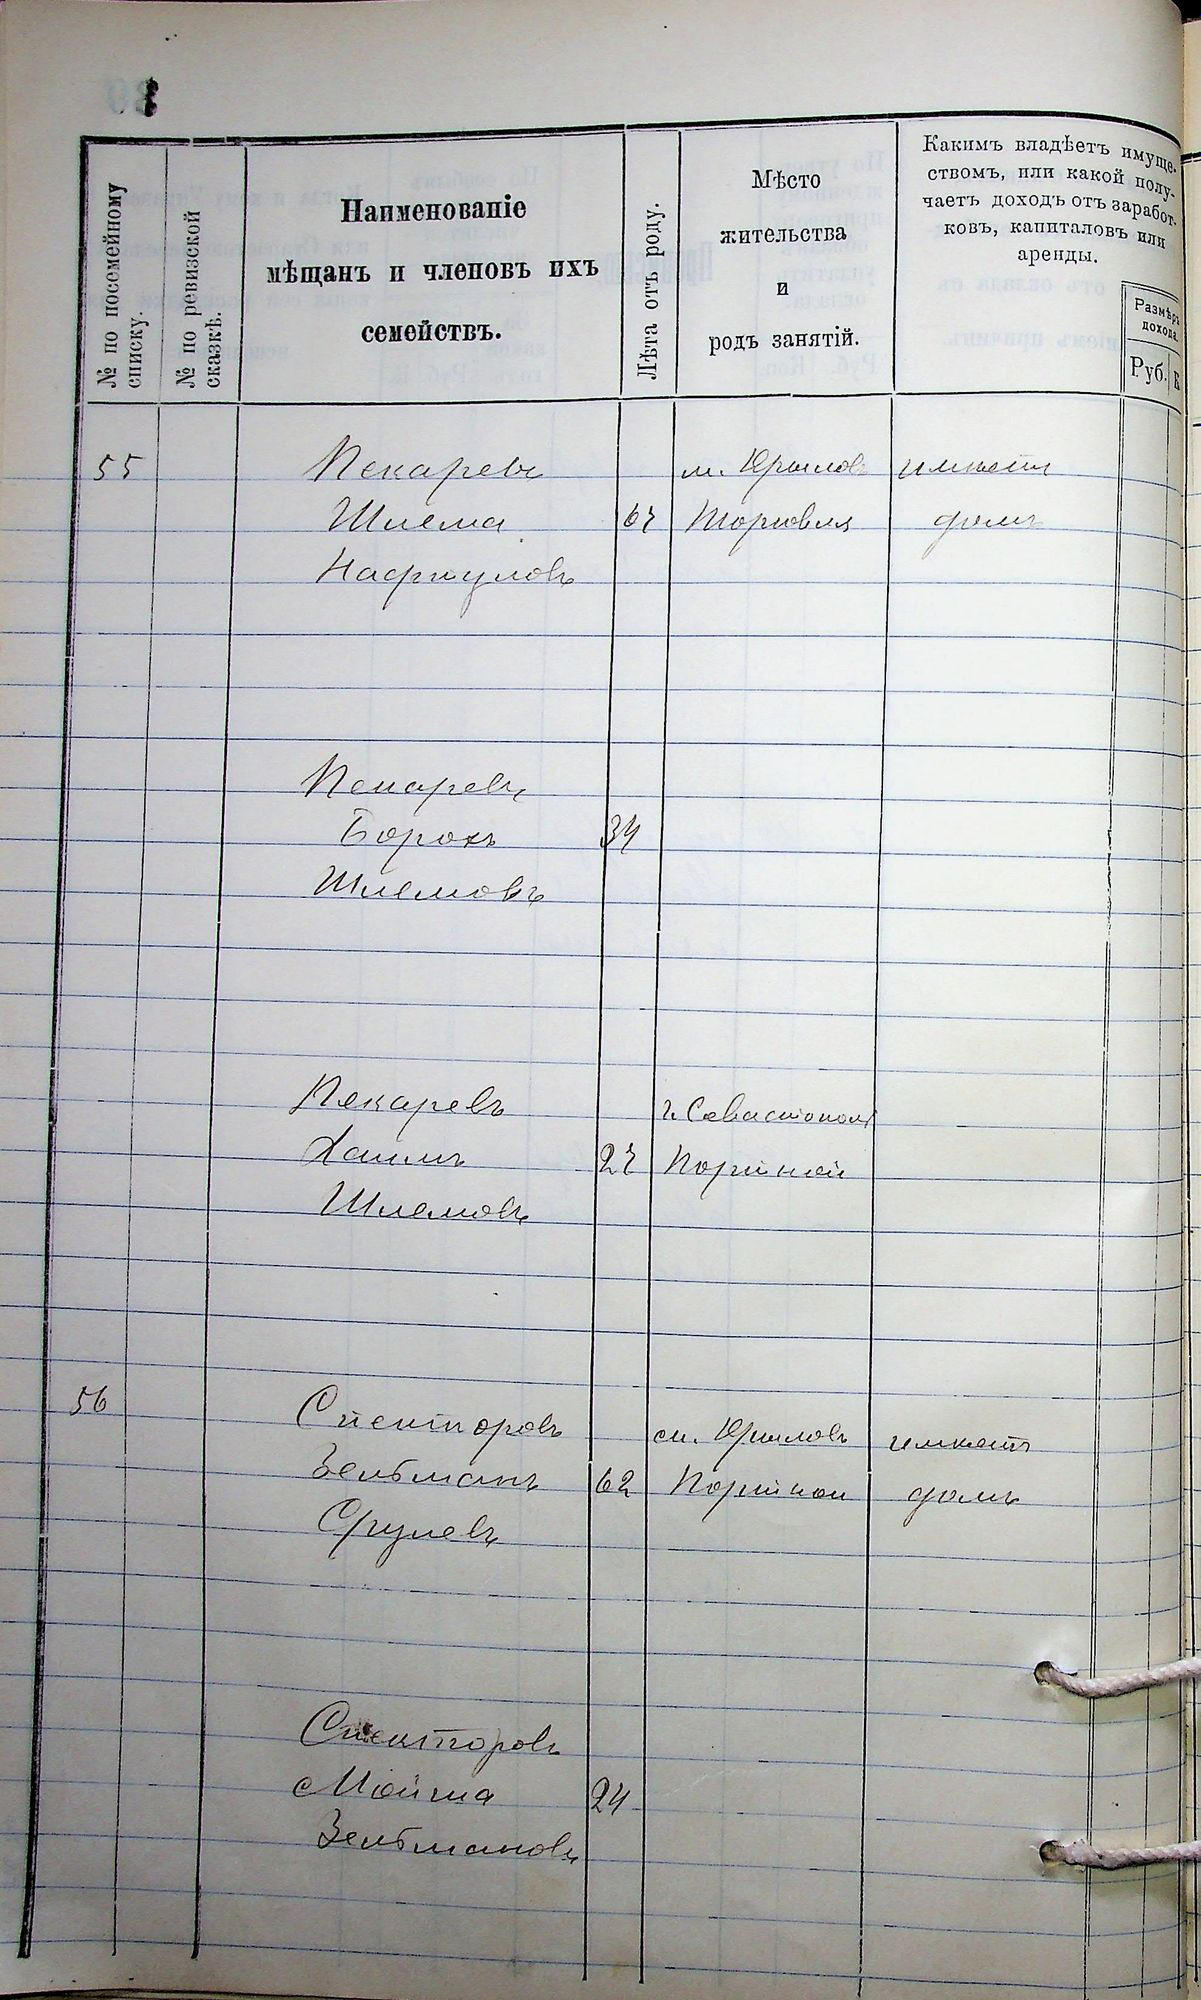 № по посемейному списку.
№ по ревизской сказкѣ.
Наименованіе
мѣщанъ и членовъ ихъ
семействъ.
Лѣта отъ роду.
Мѣсто
жительства
и
родъ занятій.
Какимъ владѣетъ имуще-
ствомъ, или какой полу-
чаетъ доходъ отъ заработ-
ковъ, капиталовъ или
аренды.
Размѣръ
дохода.
Руб. К
55 Пекаревъ м. Крыловъ имѣетъ
Шлема 67 Торговля домъ
Нафтуловъ
Пекаревъ
Борохъ 34
Шлемовъ
Пекаревъ г. Севастополь
Хаимъ 27 Портной
Шлемовъ
56 Спекторовъ м. Крыловъ имѣетъ
Зельманъ 62 Портной домъ
Срулевъ
Спекторовъ
Мойша 24
Зельмановъ